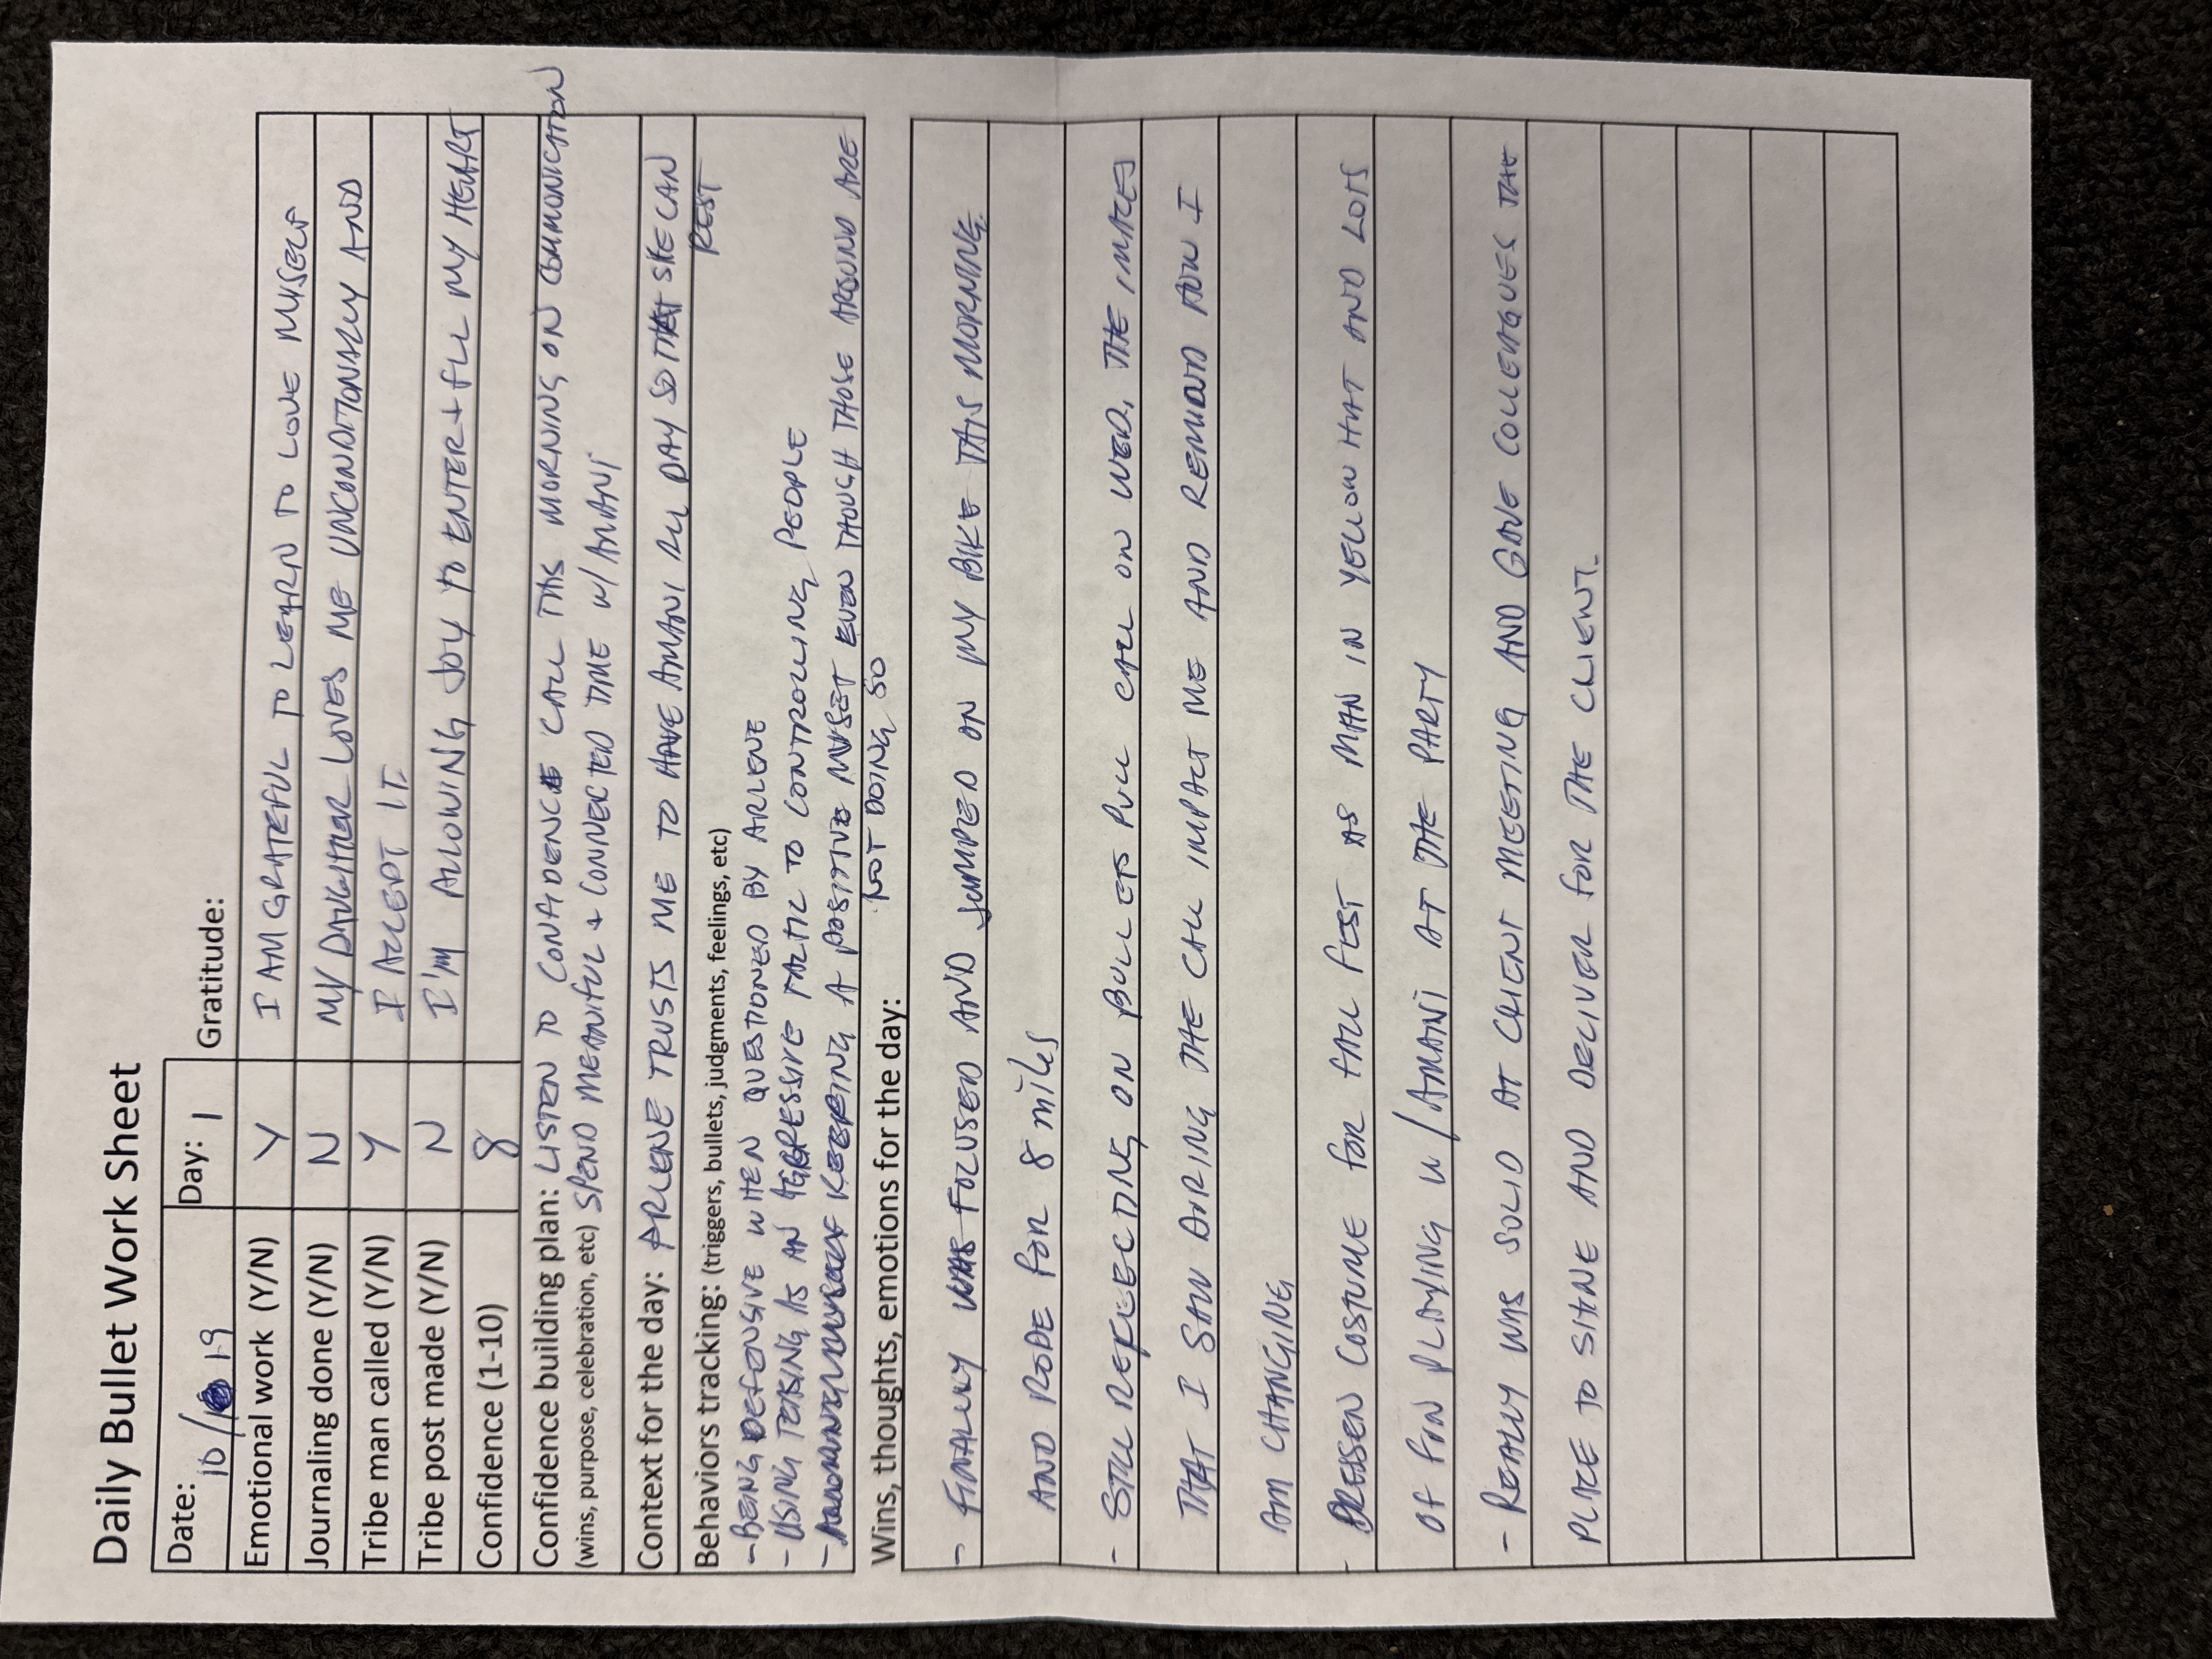 Daily Bullet Work Sheet
Date: 10/19 Day: 1 Gratitude:
Emotional work (Y/N) Y I AM GRATEFUL TO LEARN TO LOVE MYSELF
Journaling done (Y/N) N MY DAUGHTER LOVES ME UNCONDITIONALLY AND
Tribe man called (Y/N) Y I ACCEPT IT.
Tribe post made (Y/N) N I'M ALLOWING JOY TO ENTER + FILL MY HEART
Confidence (1-10) 8
Confidence building plan: LISTEN TO CONFIDENCE CALL THIS MORNING ON COMMUNICATION
(wins, purpose, celebration, etc) SPEND MEANIFUL + CONNECTED TIME W/ AMANI
Context for the day: ARLENE TRUSTS ME TO HAVE AMANI ALL DAY SO THAT SHE CAN
REST
Behaviors tracking: (triggers, bullets, judgments, feelings, etc)
- BEING DEFENSIVE WHEN QUESTIONED BY ARLENE
- USING TEASING AS AN AGGRESSIVE TACTIC TO CONTROLLING PEOPLE
- KEEPING A POSITIVE MYSELF EVEN THOUGH THOSE AROUND ARE
NOT DOING SO
Wins, thoughts, emotions for the day:
- FINALLY WAS FOCUSED AND JUMPED ON MY BIKE THIS MORNING
AND RODE FOR 8 miles
- STILL REFLECTING ON BULLETS PULL CALL ON WED. THE IMAGES
THAT I SAW DURING THE CALL IMPACT ME AND REMIND HOW I
AM CHANGING
- DRESSED COSTUME FOR FALL FEST AS MAN IN YELLOW HAT AND LOTS
OF FUN PLAYING W/ AMANI AT THE PARTY
- REALLY WAS SOLID AT CLIENT MEETING AND GAVE COLLEAGUES THE
PLACE TO SHINE AND DELIVER FOR THE CLIENT.